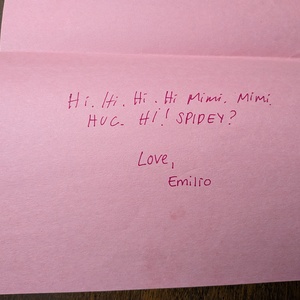 Hi. Hi. Hi. Hi Mimi. Mimi.
HUG. Hi! SPIDEY?
Love,
Emilio